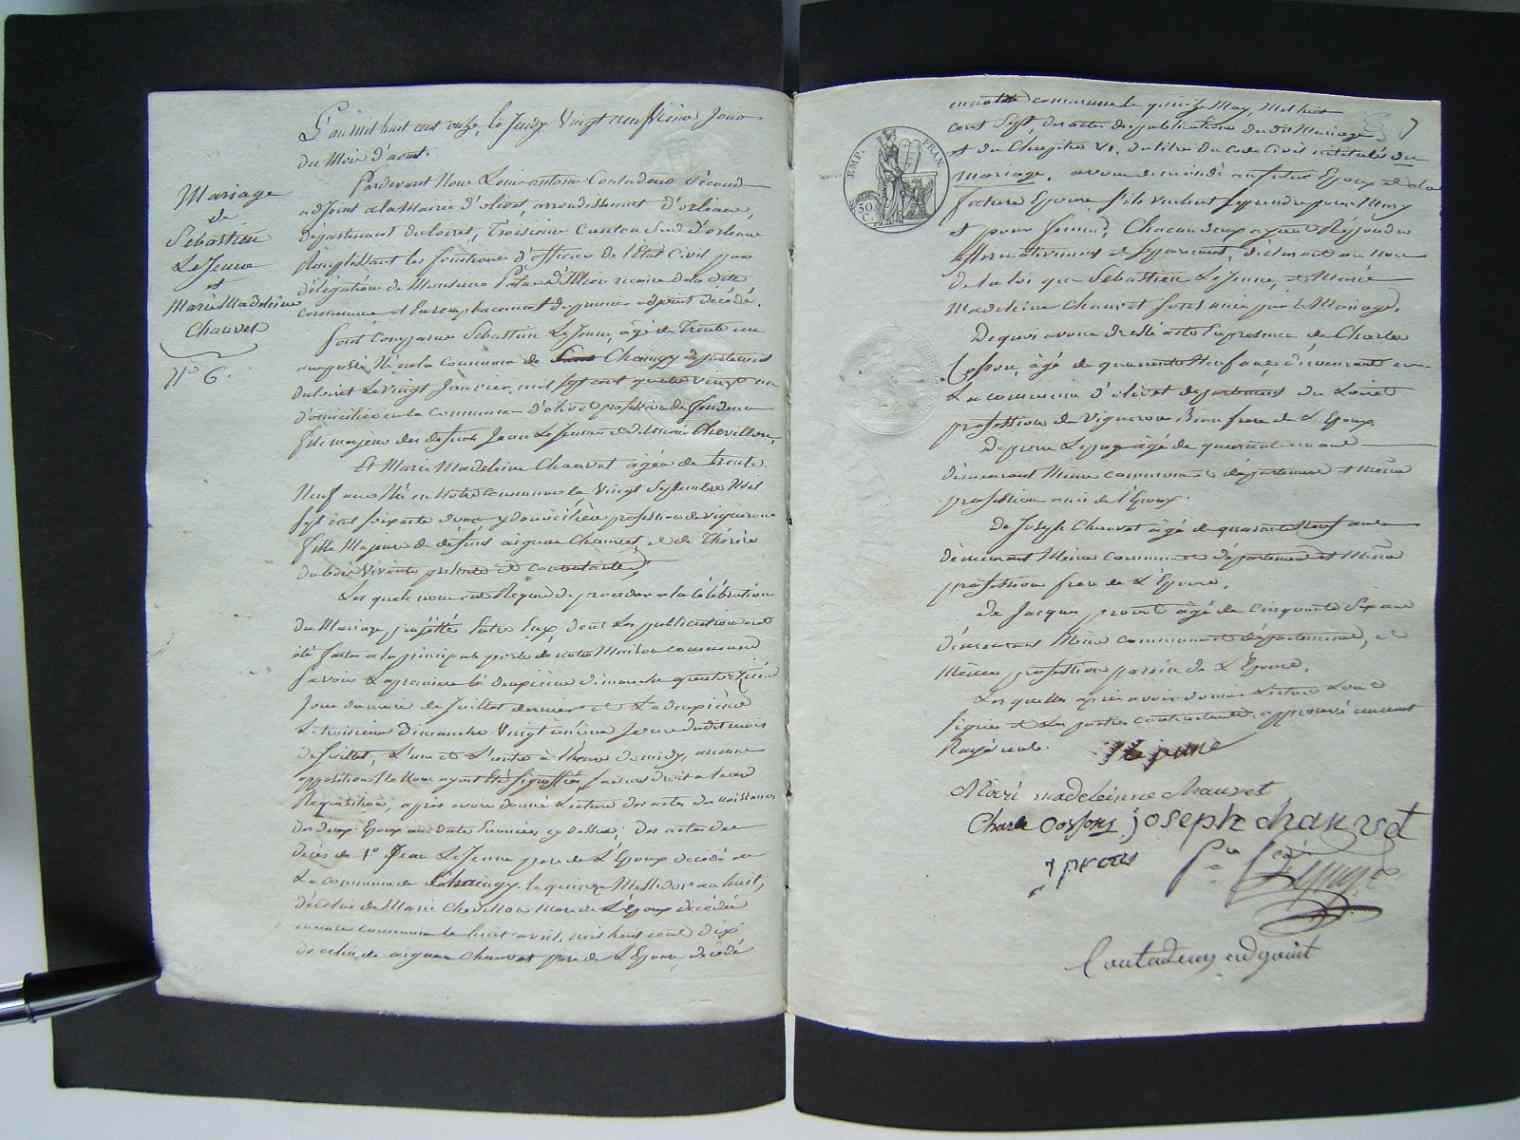 L'an mil huit cent onze, le Jeudy Vingt neufvieme Jour
du Mois d'aout.
Mariage
de
Sebastien
LeJeune
et
Marie Madeleine
Chauvet
N° 6.
Pardevant Nous Louis antoine Contadeur Second
adjoint a la Mairie d'olivet, arrondissement d'orléans,
Département du loiret, Troisieme Canton Sud D'orléans
Remplissant les fonctions d'officier de l'Etat Civil par
délégation de Monsieur maire de la dite
commune et En remplacement du premier adjoint décédé.
Sont Comparus Sebastien LeJeune, agé de Trente un
ans passé Né en la commune de Chaingy département
du loiret Le vingt Janvier mil sept cent quatre vingt un
Domicilié en la Commune d'olivet profession de
fils majeur des defunts Jean LeJeune et de Marie Chevillon,
Et Marie Madeleine Chauvet agée de trente
Neuf ans Née en Notre commune le Vingt Septembre Mil
Sept cent soixante onze y domiciliée profession de vigneronne
fille Majeure de defunt aignan Chauvet, et de Thérèse
Dubois Vivante présente et consentante,
Les quels nous ont Requis de proceder a la Célébration
du Mariage projetté Entre Eux dont les publications ont
été faites a la principale porte de notre Maison commune
Savoir La premiere le deuxieme dimanche quatorzieme
Jour du mois de Juillet dernier et La deuxieme
Le troisieme Dimanche Vingt unième Jour dudit mois
de Juillet, L'une et L'autre à l'heure de midy, aucune
opposition Ne Nous ayant Eté Signiffiée, faisant droit a leur
Requisition, après avoir donné Lecture des actes de naissances
des deux Epoux aux dates Enoncées cy dessus, des actes de
décès de 1° Jean LeJeune pere de L'Epoux décédé en
La commune de Chaingy le quinze Messidor an huit,
de celui de Marie Chevillon Mere de L'Epoux décédée
en notre commune le huit avril, mil huit cent dix
de celui de aignan Chauvet pere de L'Epouse, décédé
en notre commune le quinze May, Mil huit
cent Sept, des actes de publications du dit Mariage
et du Chapitre VI. du titre du Code Civil intitulé du
mariage, avons demandé au futur Epoux et a la
future Epouse s'ils veulent se prendre pour Mary
et pour femme, Chacun d'eux ayant Répondu
affirmativement et séparement, déclarons au nom
de la loi que Sebastien LeJeune, et Marie
Madeleine Chauvet sont unis par le Mariage.
EMP. FRAN.
50
C.
De quoi avons dressé acte En presence de Charle
Cosson, agé de quarante Neuf ans demeurant en
La commune d'olivet departement du Loiret
profession de Vigneron Beau frere de L'Epoux
De pierre Lepage agé de quarante
demeurant Même commune et département et même
profession ami de l'Epoux.
de Joseph Chauvet agé de quarante Neuf ans
demeurant Même Commune et département et Même
profession frere de L'Epouse,
de Jacques prout agé de Cinquante Six ans
demeurant Même Commune et département, et
Même profession parein de L'Epouse.
Les quelles après avoir donné Lecture L'ont
Signé et Les parties contractantes approuvé
Rayé nul.
lejeune
Marie madeleinne Chauvet
Charle Cosson joseph chauvet
j prout
Lepage
Contadeur adjoint